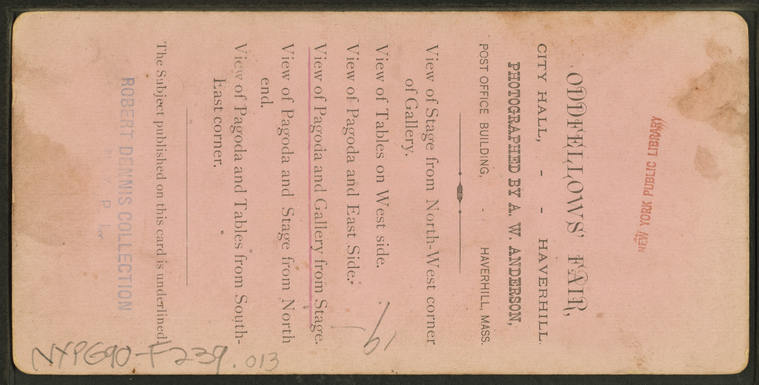 NEW YORK
PUBLIC LIBRARY
ODDFELLOWS' FAIR,
CITY HALL, - - HAVERHILL.
PHOTOGRAPHED BY A. W. ANDERSON,
POST OFFICE BUILDING, - HAVERHILL, MASS.
View of Stage from North-West corner
of Gallery.
View of Tables on West side.
View of Pagoda and East Side.
View of Pagoda and Gallery from Stage.
View of Pagoda and Stage from North
end.
View of Pagoda and Tables from South-
East corner.
The Subject published on this card is underlined.
ROBERT DENNIS COLLECTION
NYPG90-F239.013